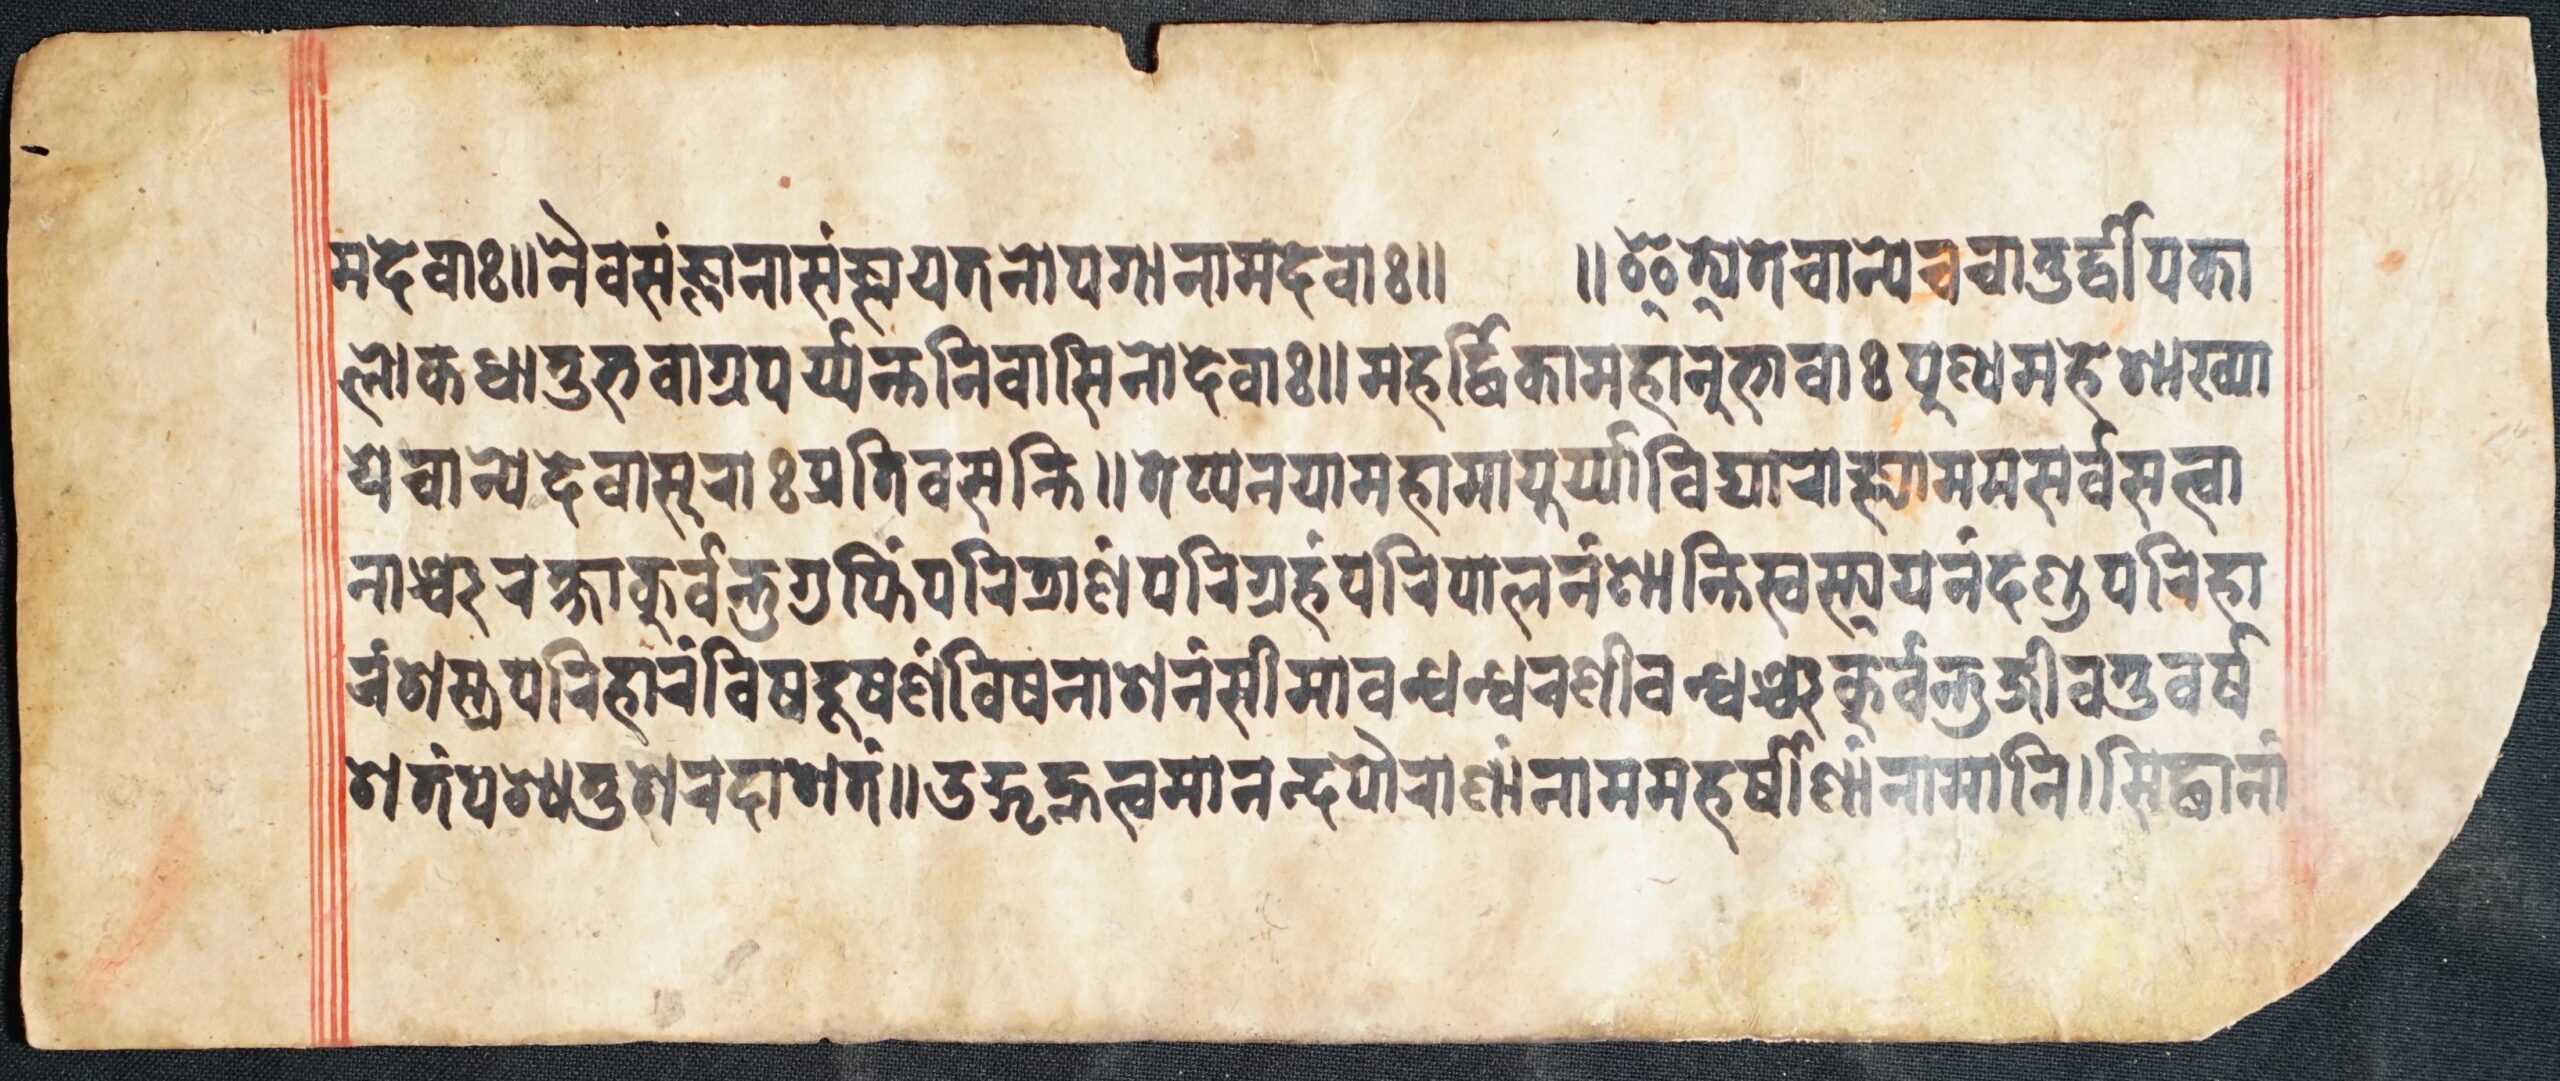 मदेवाः॥नैवसंज्ञानासंज्ञायतनोपगानामदेवाः॥ ॥इत्येतेचान्येचचातुर्द्वीपका
लोकधातुभवाग्रपर्य्यन्तनिवासिनोदेवाः॥महर्द्धिकामहानुभावाः पुण्यमहेशाख्या
येचान्येदेवासुराःप्रतिवसन्ति॥तेप्यनयामहामायुर्य्याविद्याराज्ञ्याममसर्वसत्वा
नाञ्चरक्षाकुर्वन्तुगुप्तिंपरित्राणंपरिग्रहंपरिपालनंशान्तिस्वस्त्ययनंदण्डपरिहा
रंशस्त्रपरिहारंविषदूषणंविषनाशनंसीमाबन्धन्धरणीबन्धञ्चकुर्वन्तुजीवतुवर्ष
शतंपश्यतुशरदाशतं॥उद्गृह्नत्वमानन्दपौराणांनाममहर्षीणांनामानि।सिद्धानां